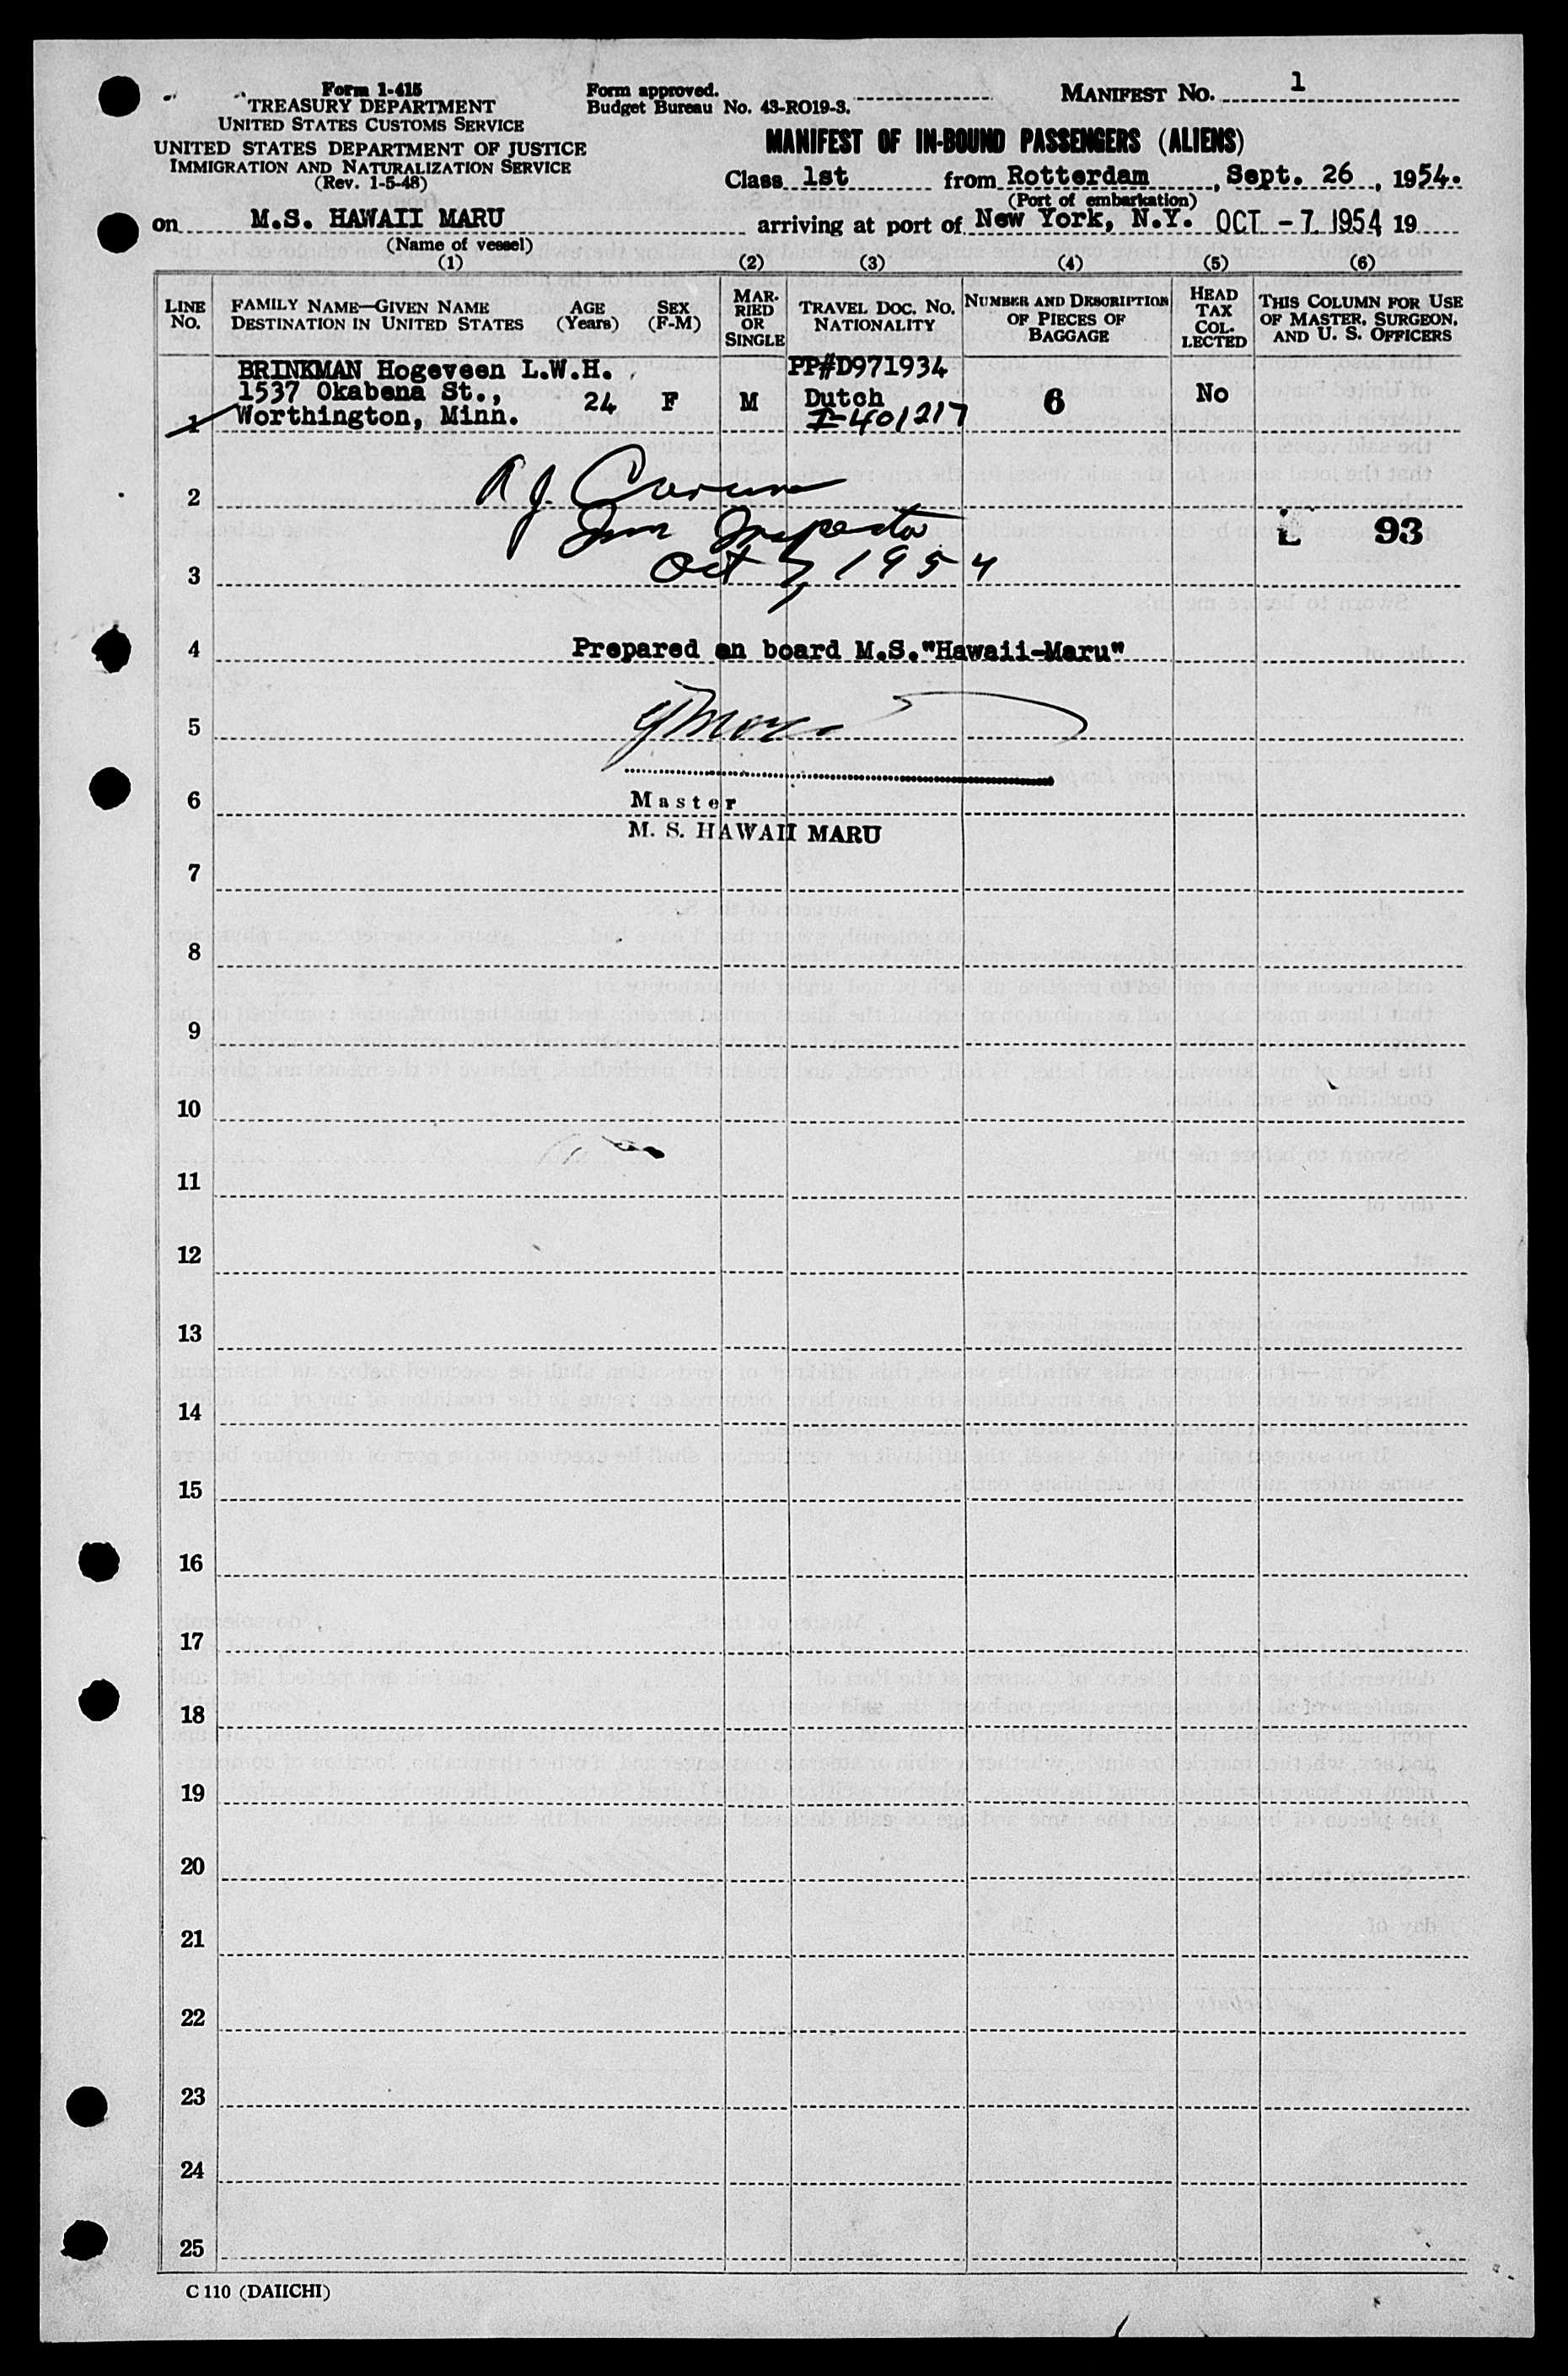 Form 1-415
TREASURY DEPARTMENT
UNITED STATES CUSTOMS SERVICE
UNITED STATES DEPARTMENT OF JUSTICE
IMMIGRATION AND NATURALIZATION SERVICE
(Rev. 1-5-48)
Form approved.
Budget Bureau No. 43-RO19-3.
MANIFEST NO. 1
MANIFEST OF IN-BOUND PASSENGERS (ALIENS)
Class 1st from Rotterdam, Sept. 26, 1954.
(Port of embarkation)
on M.S. HAWAII MARU arriving at port of New York, N.Y. OCT -7 1954 19
(Name of vessel)
(1) (2) (3) (4) (5) (6)
LINE NO. FAMILY NAME—GIVEN NAME DESTINATION IN UNITED STATES AGE (Years) SEX (F-M) MARRIED OR SINGLE TRAVEL DOC. NO. NATIONALITY NUMBER AND DESCRIPTION OF PIECES OF BAGGAGE HEAD TAX COLLECTED THIS COLUMN FOR USE OF MASTER, SURGEON, AND U. S. OFFICERS
BRINKMAN Hogeveen L.W.H. PP#D971934
1537 Okabena St., 24 F M Dutch 6 No
1 Worthington, Minn. I-401217
2
Imm Inspector
L 93
Oct 7, 1954
3
4 Prepared on board M.S."Hawaii-Maru"
5
6 Master
M. S. HAWAII MARU
7
8
9
10
11
12
13
14
15
16
17
18
19
20
21
22
23
24
25
C 110 (DAIICHI)